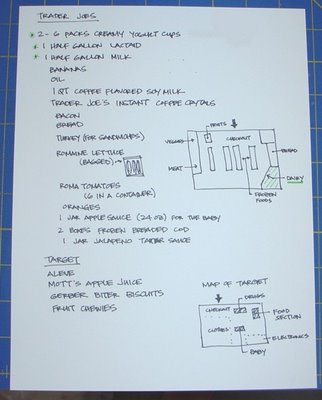 TRADER JOES
* 2 - 6 PACKS CREAMY YOGURT CUPS
* 1 HALF GALLON LACTAID
* 1 HALF GALLON MILK
BANANAS
OIL
1 QT COFFEE FLAVORED SOY MILK
TRADER JOE'S INSTANT COFFEE CRYSTALS
BACON
BREAD
TURKEY (FOR SANDWICHES)
ROMAINE LETTUCE
(BAGGED)
ROMA TOMATOES
(6 IN A CONTAINER)
ORANGES
1 JAR APPLE SAUCE (24 OZ) FOR THE BABY
2 BOXES FROZEN BREADED COD
1 JAR JALAPENO TARTER SAUCE
FRUITS
VEGGIES
CHECKOUT
BREAD
MEAT
DAIRY
FROZEN
FOODS
TARGET
ALEVE
MOTT'S APPLE JUICE
GERBER BITER BISCUITS
FRUIT CHEWIES
MAP OF TARGET
DRUGS
CHECKOUT
FOOD
SECTION
CLOTHES
ELECTRONICS
BABY